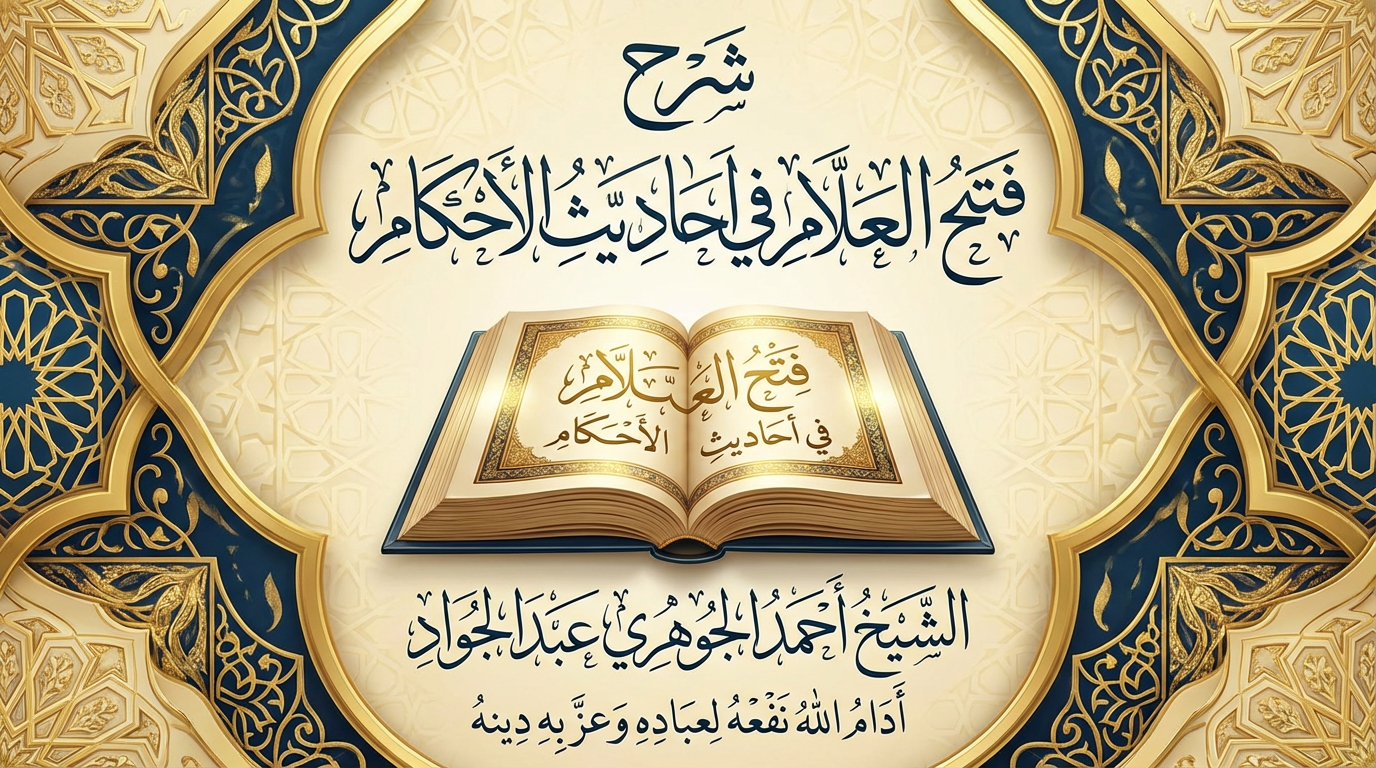 شَرْح
فَتَحُ العَلَّامِ فِي أَحَادِيَثِ الأَحْكَامِ
فَتْحُ العَلَّامِ
في أحَاديثِ الأَحْكَامِ
الشَّيَخُ أَحْمَدُ الجُوْهَرِي عَبَدَ الجُوَادِ
أَدَامُ اللهُ نَفْعَهُ لِعبَادِهِ وَعزَّ بِهِ دِينهُ